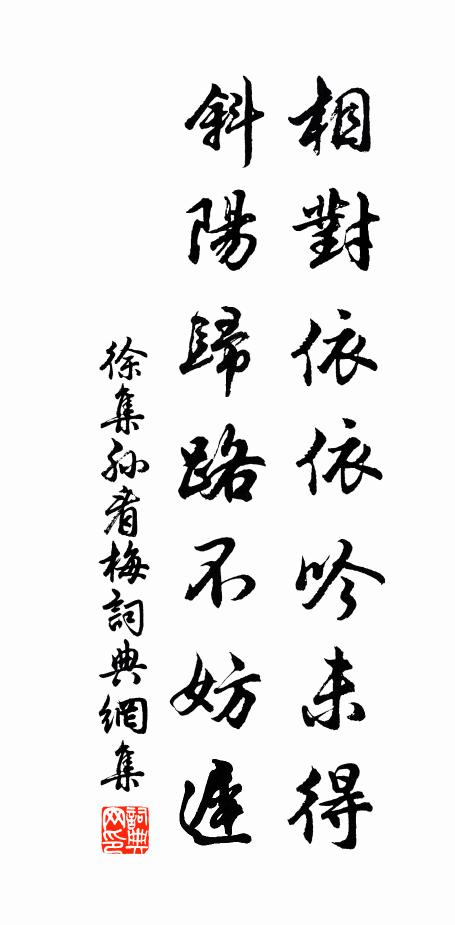 相對依依吟未得
斜陽歸路不妨遲
徐集孫看梅詞典網集
詞典网印